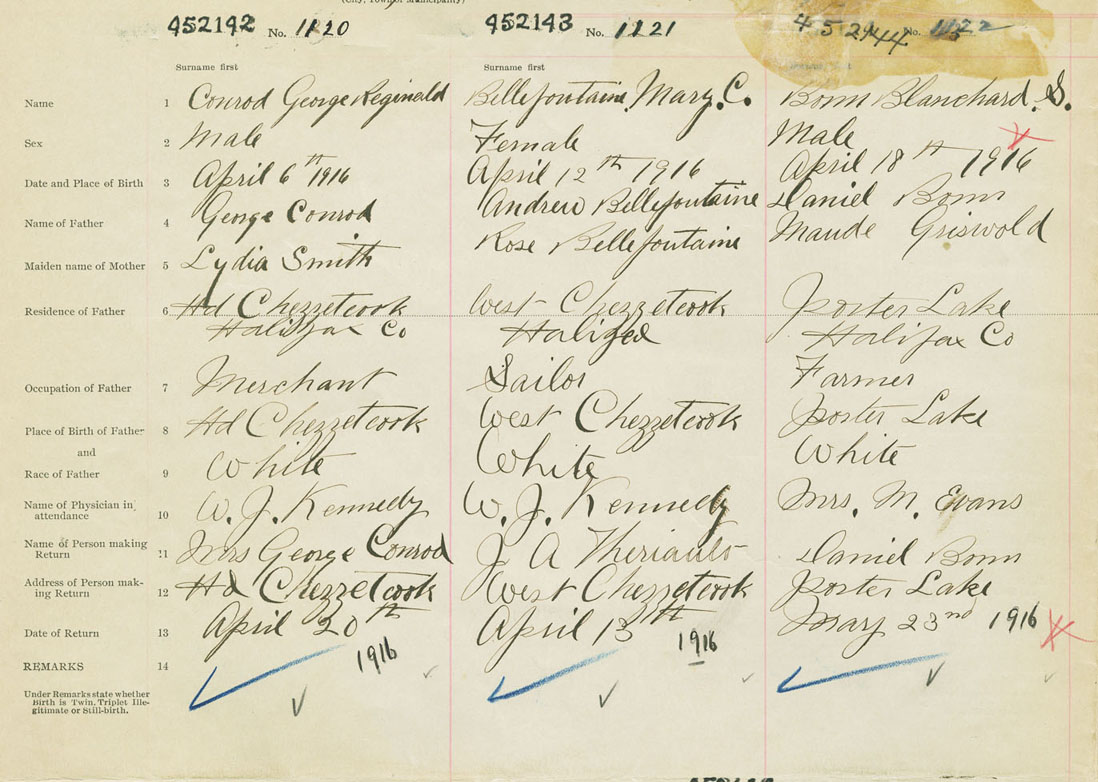 (City, Town or Municipality)
452142 No. 1120 452143 No. 1121 452144 No. 1122
Surname first Surname first
Name 1 Conrod George Reginald Bellefontaine, Mary. C. Bonn Blanchard. S.
Sex 2 Male Female Male
Date and Place of Birth 3 April 6th 1916 April 12th 1916 April 18th 1916
Name of Father 4 George Conrod Andrew Bellefontaine Daniel Bonn
Maiden name of Mother 5 Lydia Smith Rose Bellefontaine Maude Griswold
Residence of Father 6 Hd Chezzetcook West Chezzetcook Porter Lake
Halifax Co Halifax Halifax Co
Occupation of Father 7 Merchant Sailor Farmer
Place of Birth of Father 8 Hd Chezzetcook West Chezzetcook Porter Lake
and
Race of Father 9 White White White
Name of Physician in
attendance 10 W. J. Kennedy W. J. Kennedy Mrs. M. Evans
Name of Person making
Return 11 Mrs George Conrod J A Theriault Daniel Bonn
Address of Person mak-
ing Return 12 Hd Chezzetcook West Chezzetcook Porter Lake
Date of Return 13 April 20th 1916 April 13th 1916 May 23rd 1916
REMARKS 14
Under Remarks state whether
Birth is Twin. Triplet Ille-
gitimate or Still-birth.